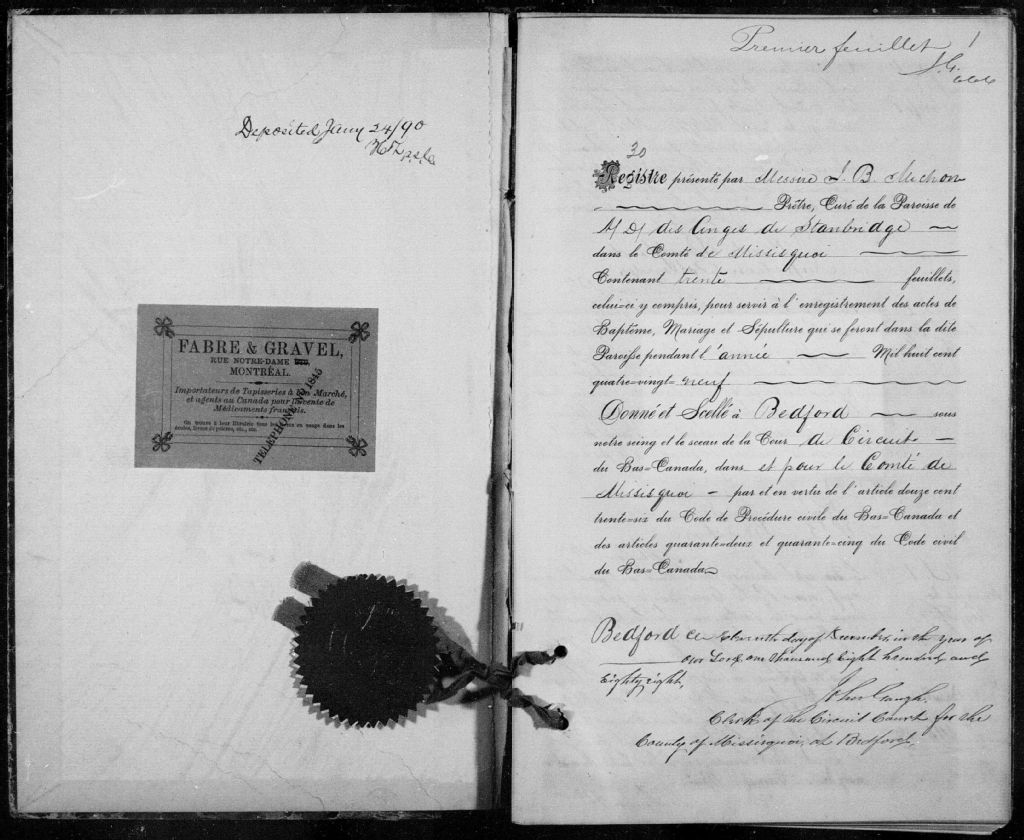 Deposited Jany 24/90
FABRE & GRAVEL,
RUE NOTRE-DAME
MONTRÉAL.
Importateurs de Tapisseries à Bon Marché,
et agents au Canada pour la vente de
Médicaments français.
On trouve à leur librairie tous les livres en usage dans les
écoles, livres de prières, etc., etc.
TELEPHONE 1845
Premier feuillet 1
30
Registre présenté par Messire J. B. Michon
Prêtre, Curé de la Paroisse de
N. D. des Anges de Stanbridge
dans le Comté de Missisquoi
Contenant trente feuillets,
celui-ci y compris, pour servir à l'enregistrement des actes de
Baptême, Mariage et Sépulture qui se feront dans la dite
Paroisse pendant l'année Mil huit cent
quatre-vingt-neuf
Donné et Scellé à Bedford sous
notre seing et le sceau de la Cour de Circuit
du Bas-Canada, dans et pour le Comté de
Missisquoi par et en vertu de l'article douze cent
trente-six du Code de Procédure civile du Bas-Canada et
des articles quarante-deux et quarante-cinq du Code civil
du Bas-Canada.
Bedford ce Eleventh day of December in the year of
our Lord one thousand Eight hundred and
Eighty eight,
Clerk of the Circuit Court for the
County of Missisquoi, at Bedford.